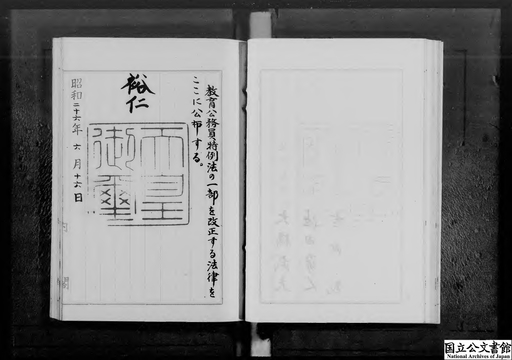 教育公務員特例法の一部を改正する法律を
ここに公布する。
裕仁
天皇
御璽
昭和二十六年六月十六日
国立公文書館
National Archives of Japan